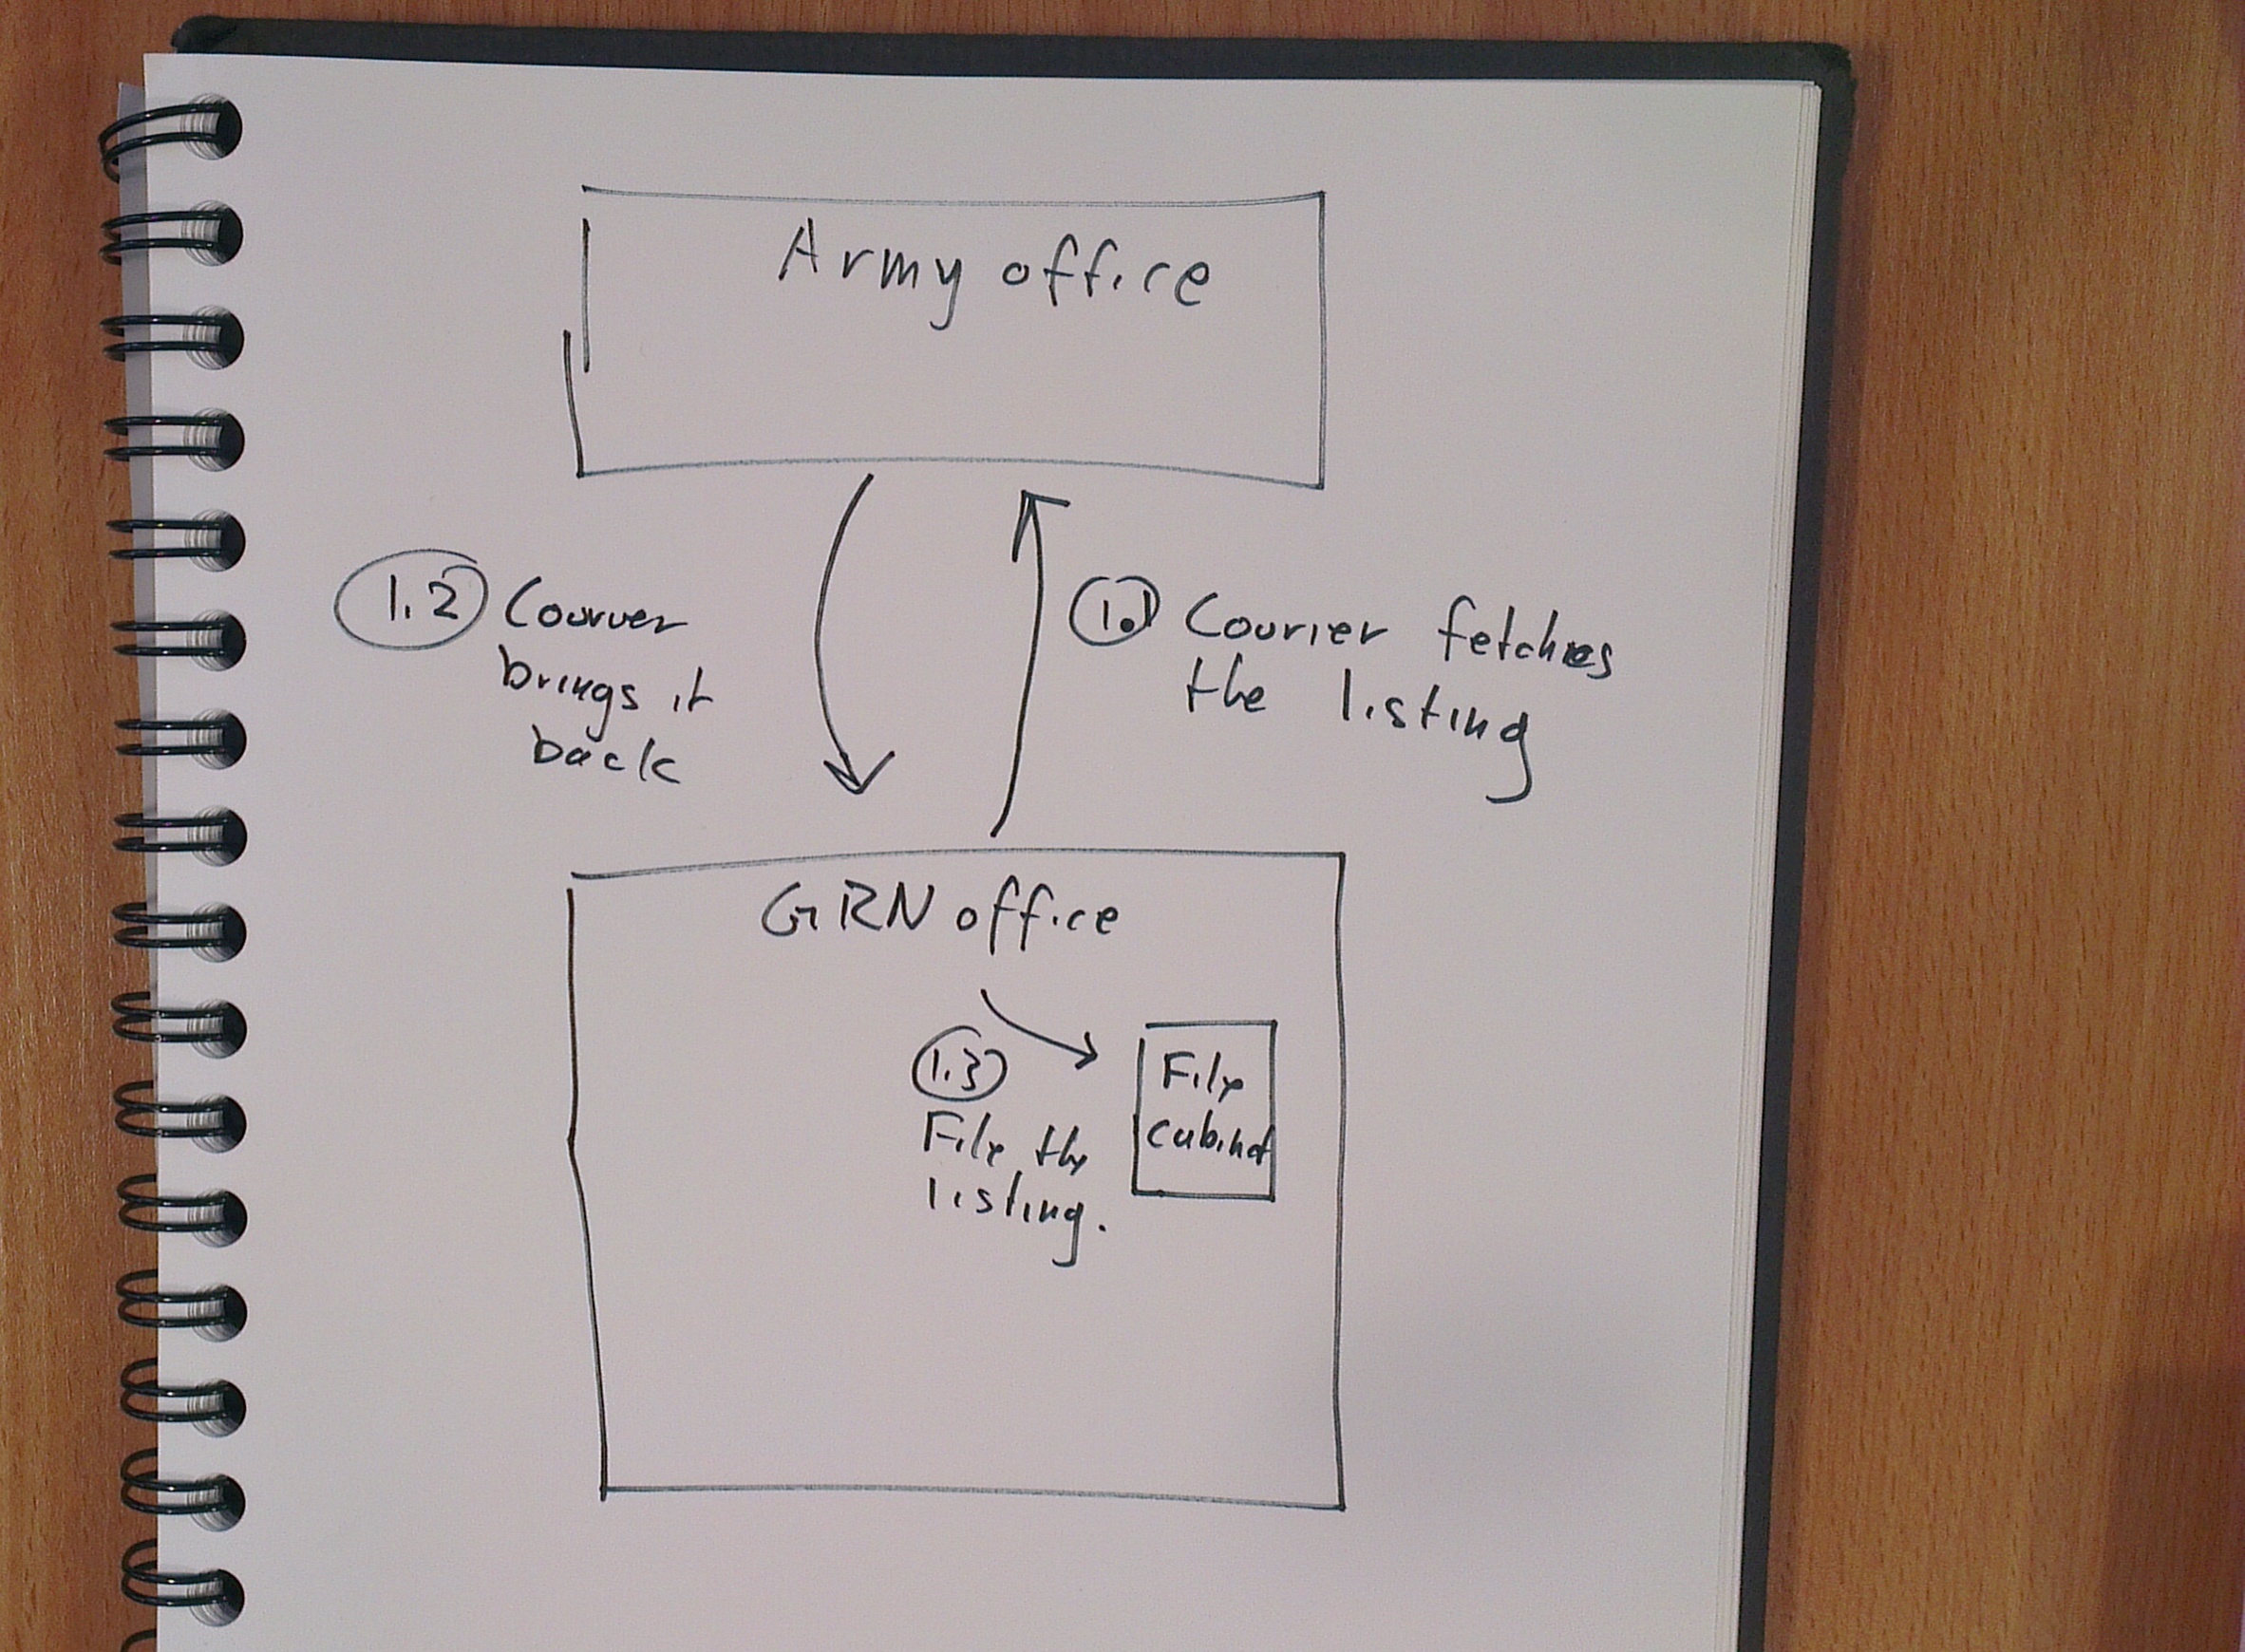 Army office
1.2 Courier
brings it
back
1.1 Courier fetches
the listing
GRN office
1.3
File the
listing.
File
cabinet